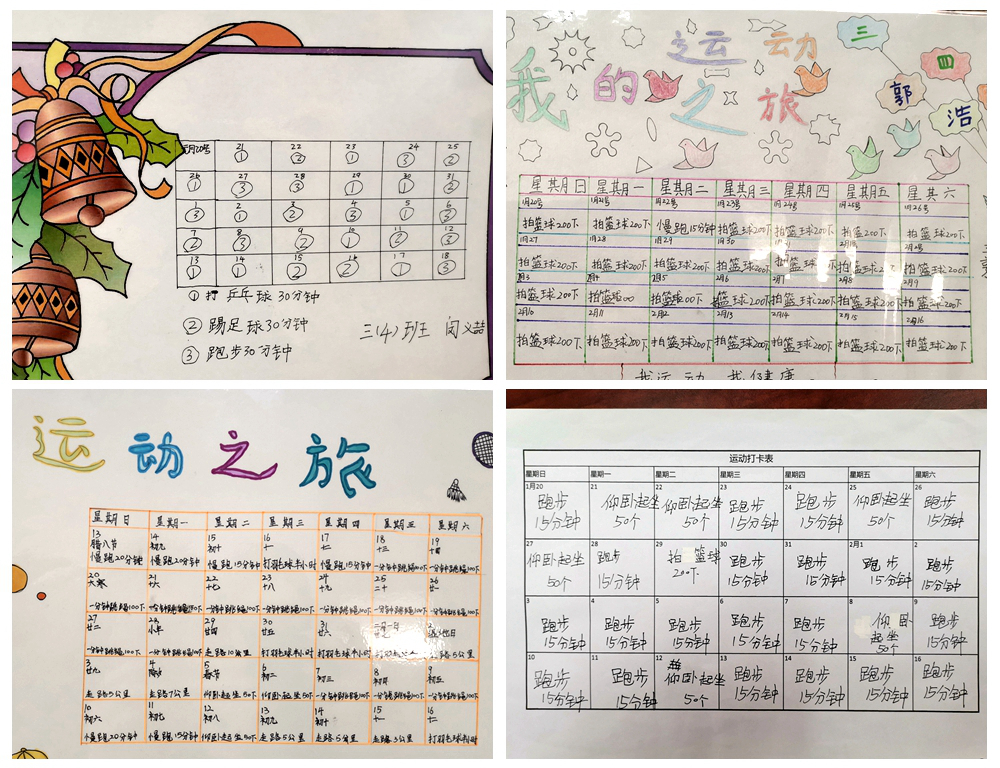 元月20号 21 22 23 24 25
① ② ① ③ ②
26 27 28 29 30 31
① ③ ③ ① ① ②
1 2 3 4 5 6
③ ① ② ③ ① ②
7 8 9 10 11 12
② ③ ② ① ② ③
13 14 15 16 17 18
① ① ② ② ① ③
① 打乒乓球30分钟
② 踢足球30分钟
③ 跑步30分钟
三(4)班 闵义喆
我的运动之旅
三四
郭浩
星期日 星期一 星期二 星期三 星期四 星期五 星期六
1月20号 1月21号 1月22号 1月23号 1月24号 1月25号 1月26号
拍篮球200下 拍篮球200下 慢跑15分钟 拍篮球200下 拍篮球200下 拍篮200下 拍篮球200下
1月27 1月28 1月29 1月30
拍篮球200下 拍篮球200下 拍篮球200下 拍篮球200下 拍篮球200下 拍篮球200下 拍篮球200下
2月4 2月5 2月6 2月7 2月8 2月9
拍篮球200下 拍篮球200 拍篮球200下 拍篮球200下 拍篮球200下 拍篮球200下 拍篮球200下
2月10 2月11 2月12 2月13 2月14 2月15 2月16
拍篮球200下 拍篮球200下 拍篮球200下 拍篮球200下 拍篮球200下 拍篮球200下 拍篮球200下
我运动 我健康
运动之旅
星期日 星期一 星期二 星期三 星期四 星期五 星期六
13 14 15 16 17 18 19
腊八节 初九 初十 十一 十二 十三 十四
慢跑20分钟 慢跑20分钟 慢跑15分钟 打羽毛球半小时 慢跑15分钟 一分钟跳绳100下 一分钟跳绳100下
20 21 22 23 24 25 26
大寒 十六 十七 十八 十九 二十 廿一
一分钟跳绳100下 一分钟跳绳100下 一分钟跳绳100下 一分钟跳绳100下 一分钟跳绳100下 一分钟跳绳100下 一分钟跳绳100下
27 28 29 30 31 二月一号 2
廿二 小年 廿四 廿五 廿六
一分钟跳绳100下 一分钟跳绳100下 走路10公里 打羽毛球半小时 打羽毛球半小时 走路5公里
3 4 5 6 7 8 9
廿九 除夕 春节 初二 初三 初四 初五
走路5公里 走路7公里 仰卧起坐50下 仰卧起坐50下 一分钟跳绳100下 一分钟跳绳100下 一分钟跳绳100下
10 11 12 13 14 15 16
初六 初七 初八 初九 初十 十一 十二
慢跑20分钟 慢跑15分钟 仰卧起坐50下 走路5公里 走路5公里 走路3公里 打羽毛球半小时
运动打卡表
星期日 星期一 星期二 星期三 星期四 星期五 星期六
1月20 21 22 23 24 25 26
跑步 仰卧起坐 仰卧起坐 跑步 跑步 仰卧起坐 跑步
15分钟 50个 50个 15分钟 15分钟 50个 15分钟
27 28 29 30 31 2月1 2
仰卧起坐 跑步 拍篮球 跑步 跑步 跑步 跑步
50个 15分钟 200下 15分钟 15分钟 15分钟 15分钟
3 4 5 6 7 8 9
跑步 跑步 跑步 跑步 跑步 仰卧起坐 跑步
15分钟 15分钟 15分钟 15分钟 15分钟 50个 15分钟
10 11 12 13 14 15 16
跑步 跑步 仰卧起坐 跑步 跑步 跑步 跑步
15分钟 15分钟 50个 15分钟 15分钟 15分钟 15分钟